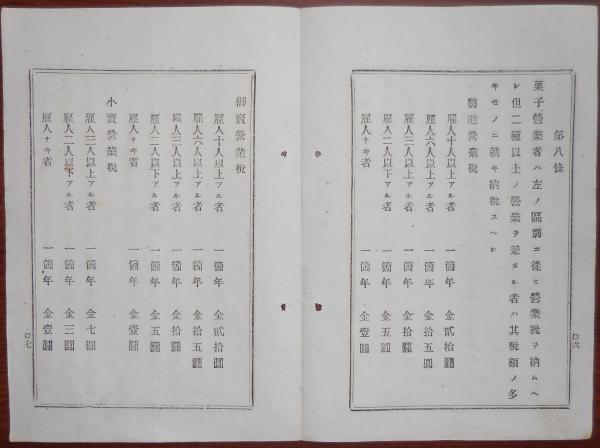 第八條
菓子營業者ハ左ノ區別ニ從ヒ營業稅ヲ納ムヘ
シ但二種以上ノ營業ヲ兼ヌル者ハ其稅額ノ多
キモノニ就キ納稅スヘシ
製造營業稅
雇人十人以上アル者 一箇年 金貳拾圓
雇人六人以上アル者 一箇年 金拾五圓
雇人三人以上アル者 一箇年 金拾圓
雇人二人以下アル者 一箇年 金五圓
雇人ナキ者 一箇年 金壹圓
口六
卸賣營業稅
雇人十人以上アル者 一箇年 金貳拾圓
雇人六人以上アル者 一箇年 金拾五圓
雇人三人以上アル者 一箇年 金拾圓
雇人二人以下アル者 一箇年 金五圓
雇人ナキ者 一箇年 金壹圓
小賣營業稅
雇人三人以上アル者 一箇年 金七圓
雇人二人以下アル者 一箇年 金三圓
雇人ナキ者 一箇年 金壹圓
口七